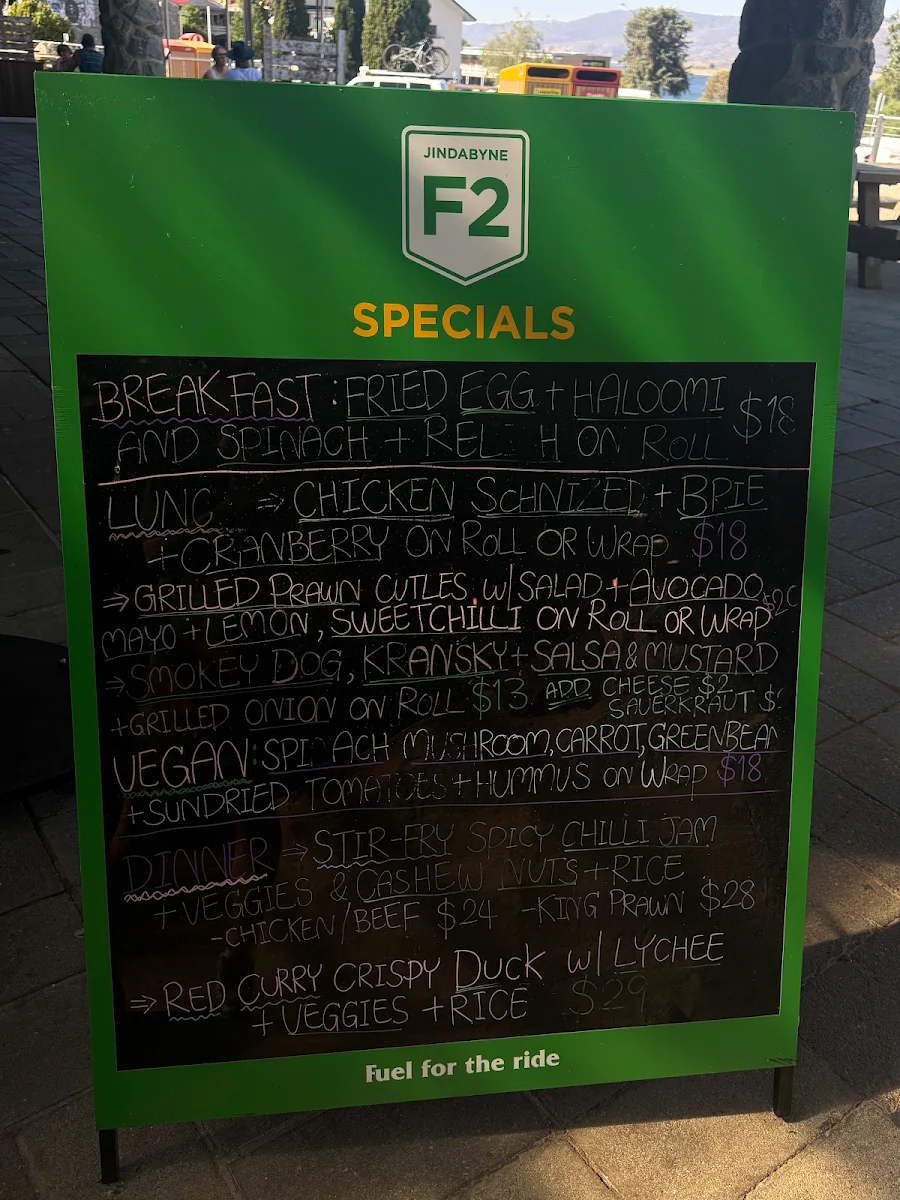 JINDABYNE
F2
SPECIALS
BREAKFAST: FRIED EGG + HALOOMI $18
AND SPINACH + REL H ON ROLL
LUNC ⇒ CHICKEN SCHNIZED + BPIE
+CRANBERRY ON ROLL OR WRAP $18
⇒ GRILLED PRAWN CUTLES w/ SALAD + AVOCADO,
MAYO + LEMON, SWEETCHILLI ON ROLL OR WRAP
⇒ SMOKEY DOG, KRANSKY + SALSA & MUSTARD
+GRILLED ONION ON ROLL $13 ADD CHEESE $2
SAUERKRAUT
VEGAN: SPINACH MUSHROOM, CARROT, GREENBEAN
+SUNDRIED TOMATOES + HUMMUS ON WRAP $18
DINNER ⇒ STIR-FRY SPICY CHILLI JAM
+VEGGIES & CASHEW NUTS + RICE
-CHICKEN/BEEF $24 -KING PRAWN $28
⇒ RED CURRY CRISPY DUCK w/ LYCHEE
+VEGGIES +RICE $29
Fuel for the ride